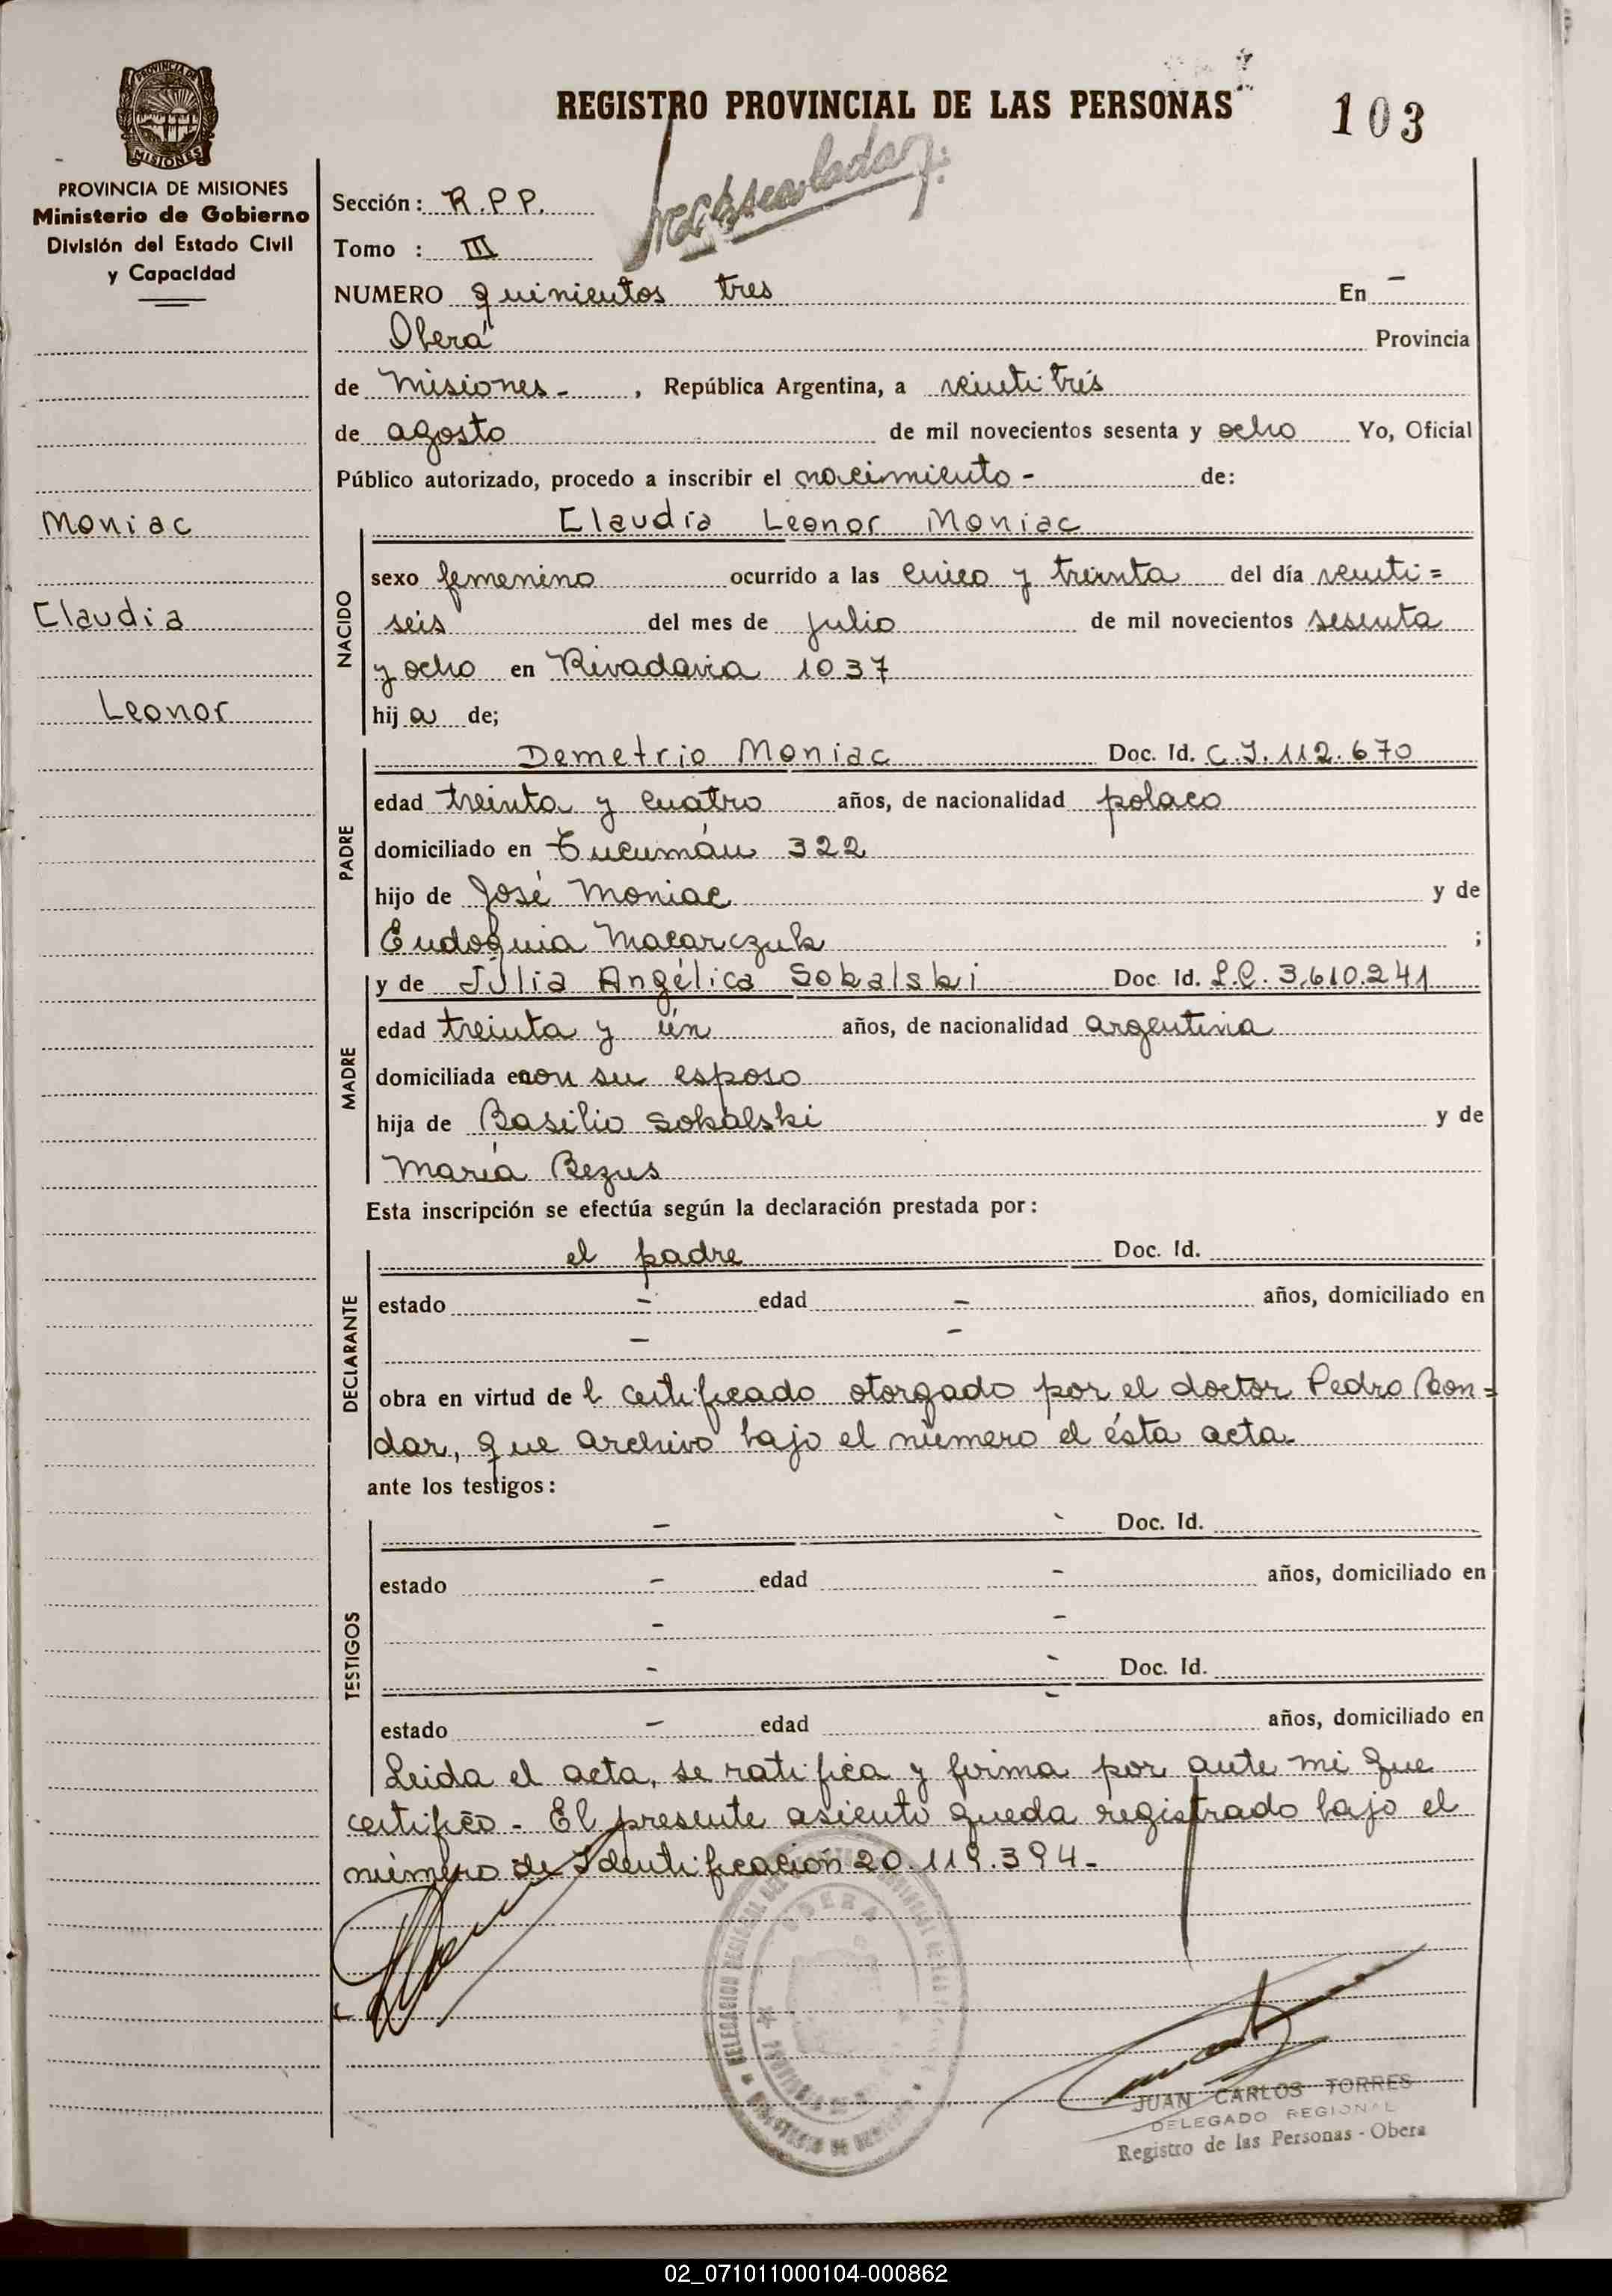 REGISTRO PROVINCIAL DE LAS PERSONAS
103
PROVINCIA DE MISIONES
MISIONES
PROVINCIA DE MISIONES
Ministerio de Gobierno
División del Estado Civil
y Capacidad
Moniac
Claudia
Leonor
Sección: R.P.P.
Tomo : III
NUMERO quinientos tres En -
Oberá Provincia
de Misiones - , República Argentina, a veintitrés
de agosto de mil novecientos sesenta y ocho Yo, Oficial
Público autorizado, procedo a inscribir el nacimiento - de:
Claudia Leonor Moniac
NACIDO
sexo femenino ocurrido a las cinco y treinta del día veinti=
seis del mes de julio de mil novecientos sesenta
y ocho en Rivadavia 1037
hij a de;
PADRE
Demetrio Moniac Doc. Id. C.I. 112.670
edad treinta y cuatro años, de nacionalidad polaco
domiciliado en Tucumán 322
hijo de José Moniac y de
Eudoquia Macarczuk ;
MADRE
y de Júlia Angélica Sokalski Doc. Id. L.C. 3.610.241
edad treinta y ún años, de nacionalidad argentina
domiciliada en con su esposo
hija de Basilio Sokalski y de
María Bezus
Esta inscripción se efectúa según la declaración prestada por:
DECLARANTE
el padre Doc. Id.
estado - edad - años, domiciliado en
- -
obra en virtud de l certificado otorgado por el doctor Pedro Bon=
dar, que archivo bajo el número d ésta acta
ante los testigos:
TESTIGOS
- - Doc. Id.
estado - edad - años, domiciliado en
- -
- - Doc. Id.
estado - edad - años, domiciliado en
Leida el acta, se ratifica y firma por ante mi que
certifico - El presente asiento queda registrado bajo el
número de Identificación 20.119.394 -
OBERA
JUAN CARLOS TORRES
DELEGADO REGIONAL
Registro de las Personas - Obera
02_071011000104-000862